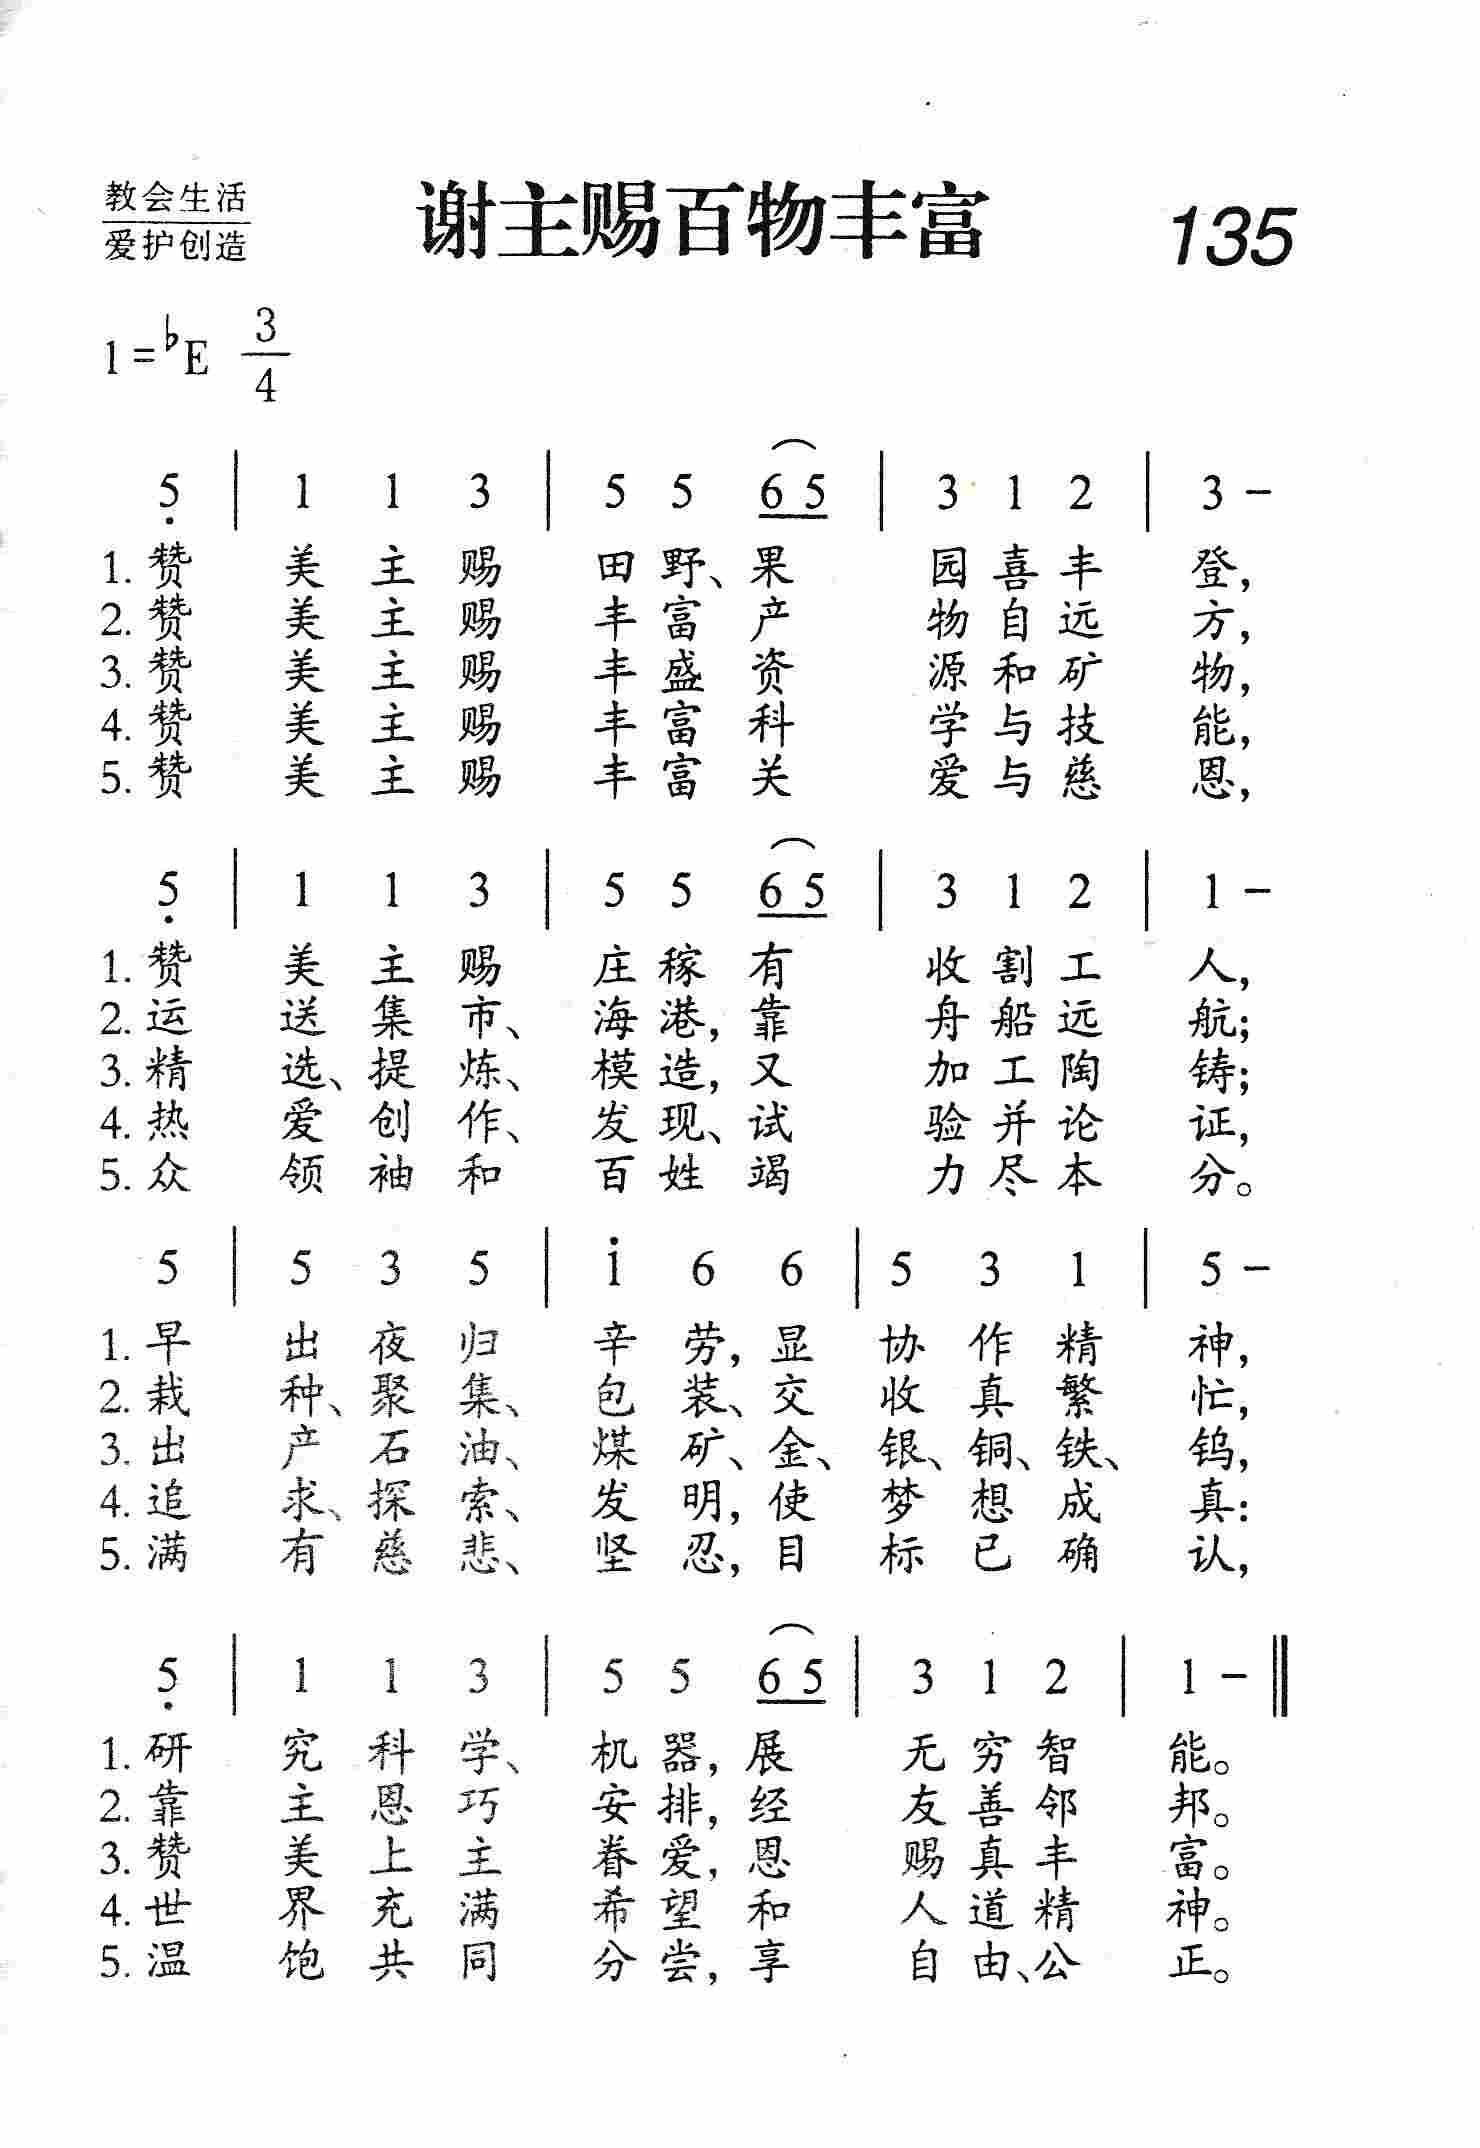 教会生活
爱护创造
谢主赐百物丰富
135
1=♭E 3/4
5̣ | 1 1 3 | 5 5 6 5 | 3 1 2 | 3 –
1. 赞 美 主 赐 田 野、果 园 喜 丰 登，
2. 赞 美 主 赐 丰 富 产 物 自 远 方，
3. 赞 美 主 赐 丰 盛 资 源 和 矿 物，
4. 赞 美 主 赐 丰 富 科 学 与 技 能，
5. 赞 美 主 赐 丰 富 关 爱 与 慈 恩，
5̣ | 1 1 3 | 5 5 6 5 | 3 1 2 | 1 –
1. 赞 美 主 赐 庄 稼 有 收 割 工 人，
2. 运 送 集 市、海 港，靠 舟 船 远 航；
3. 精 选、提 炼、模 造，又 加 工 陶 铸；
4. 热 爱 创 作、发 现、试 验 并 论 证，
5. 众 领 袖 和 百 姓 竭 力 尽 本 分。
5 | 5 3 5 | 1̇ 6 6 | 5 3 1 | 5 –
1. 早 出 夜 归 辛 劳，显 协 作 精 神，
2. 栽 种、聚 集、包 装、交 收 真 繁 忙，
3. 出 产 石 油、煤 矿、金、银、铜、铁、钨，
4. 追 求、探 索、发 明，使 梦 想 成 真：
5. 满 有 慈 悲、坚 忍，目 标 已 确 认，
5̣ | 1 1 3 | 5 5 6 5 | 3 1 2 | 1 – ‖
1. 研 究 科 学、机 器，展 无 穷 智 能。
2. 靠 主 恩 巧 安 排，经 友 善 邻 邦。
3. 赞 美 上 主 眷 爱，恩 赐 真 丰 富。
4. 世 界 充 满 希 望 和 人 道 精 神。
5. 温 饱 共 同 分 尝，享 自 由、公 正。